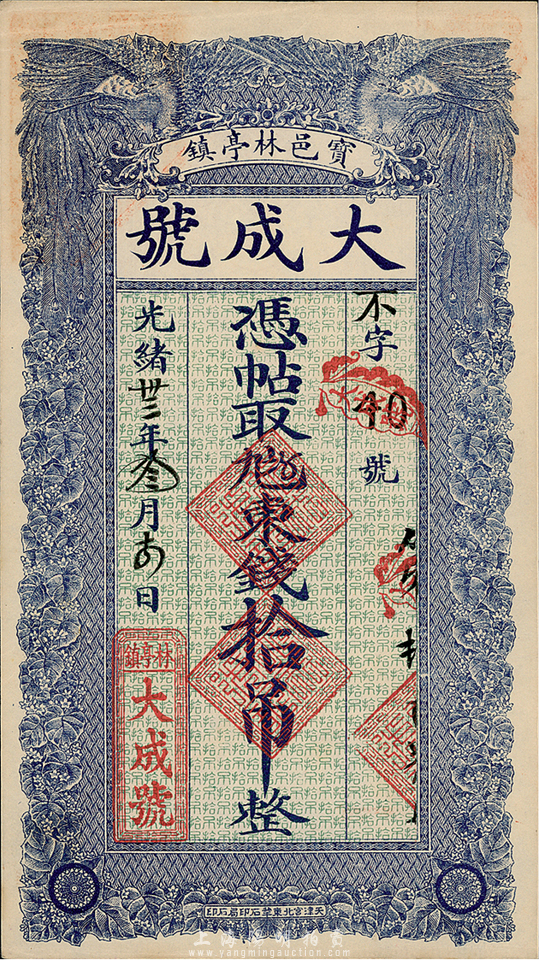 寶邑林亭鎮
大成號
不字
40
號
憑帖取
東錢拾吊整
光緒卅三年叁月
日
林亭鎮
大成號
天津宮北東華石印局石印
上海陽明拍賣
www.yangmingauction.com